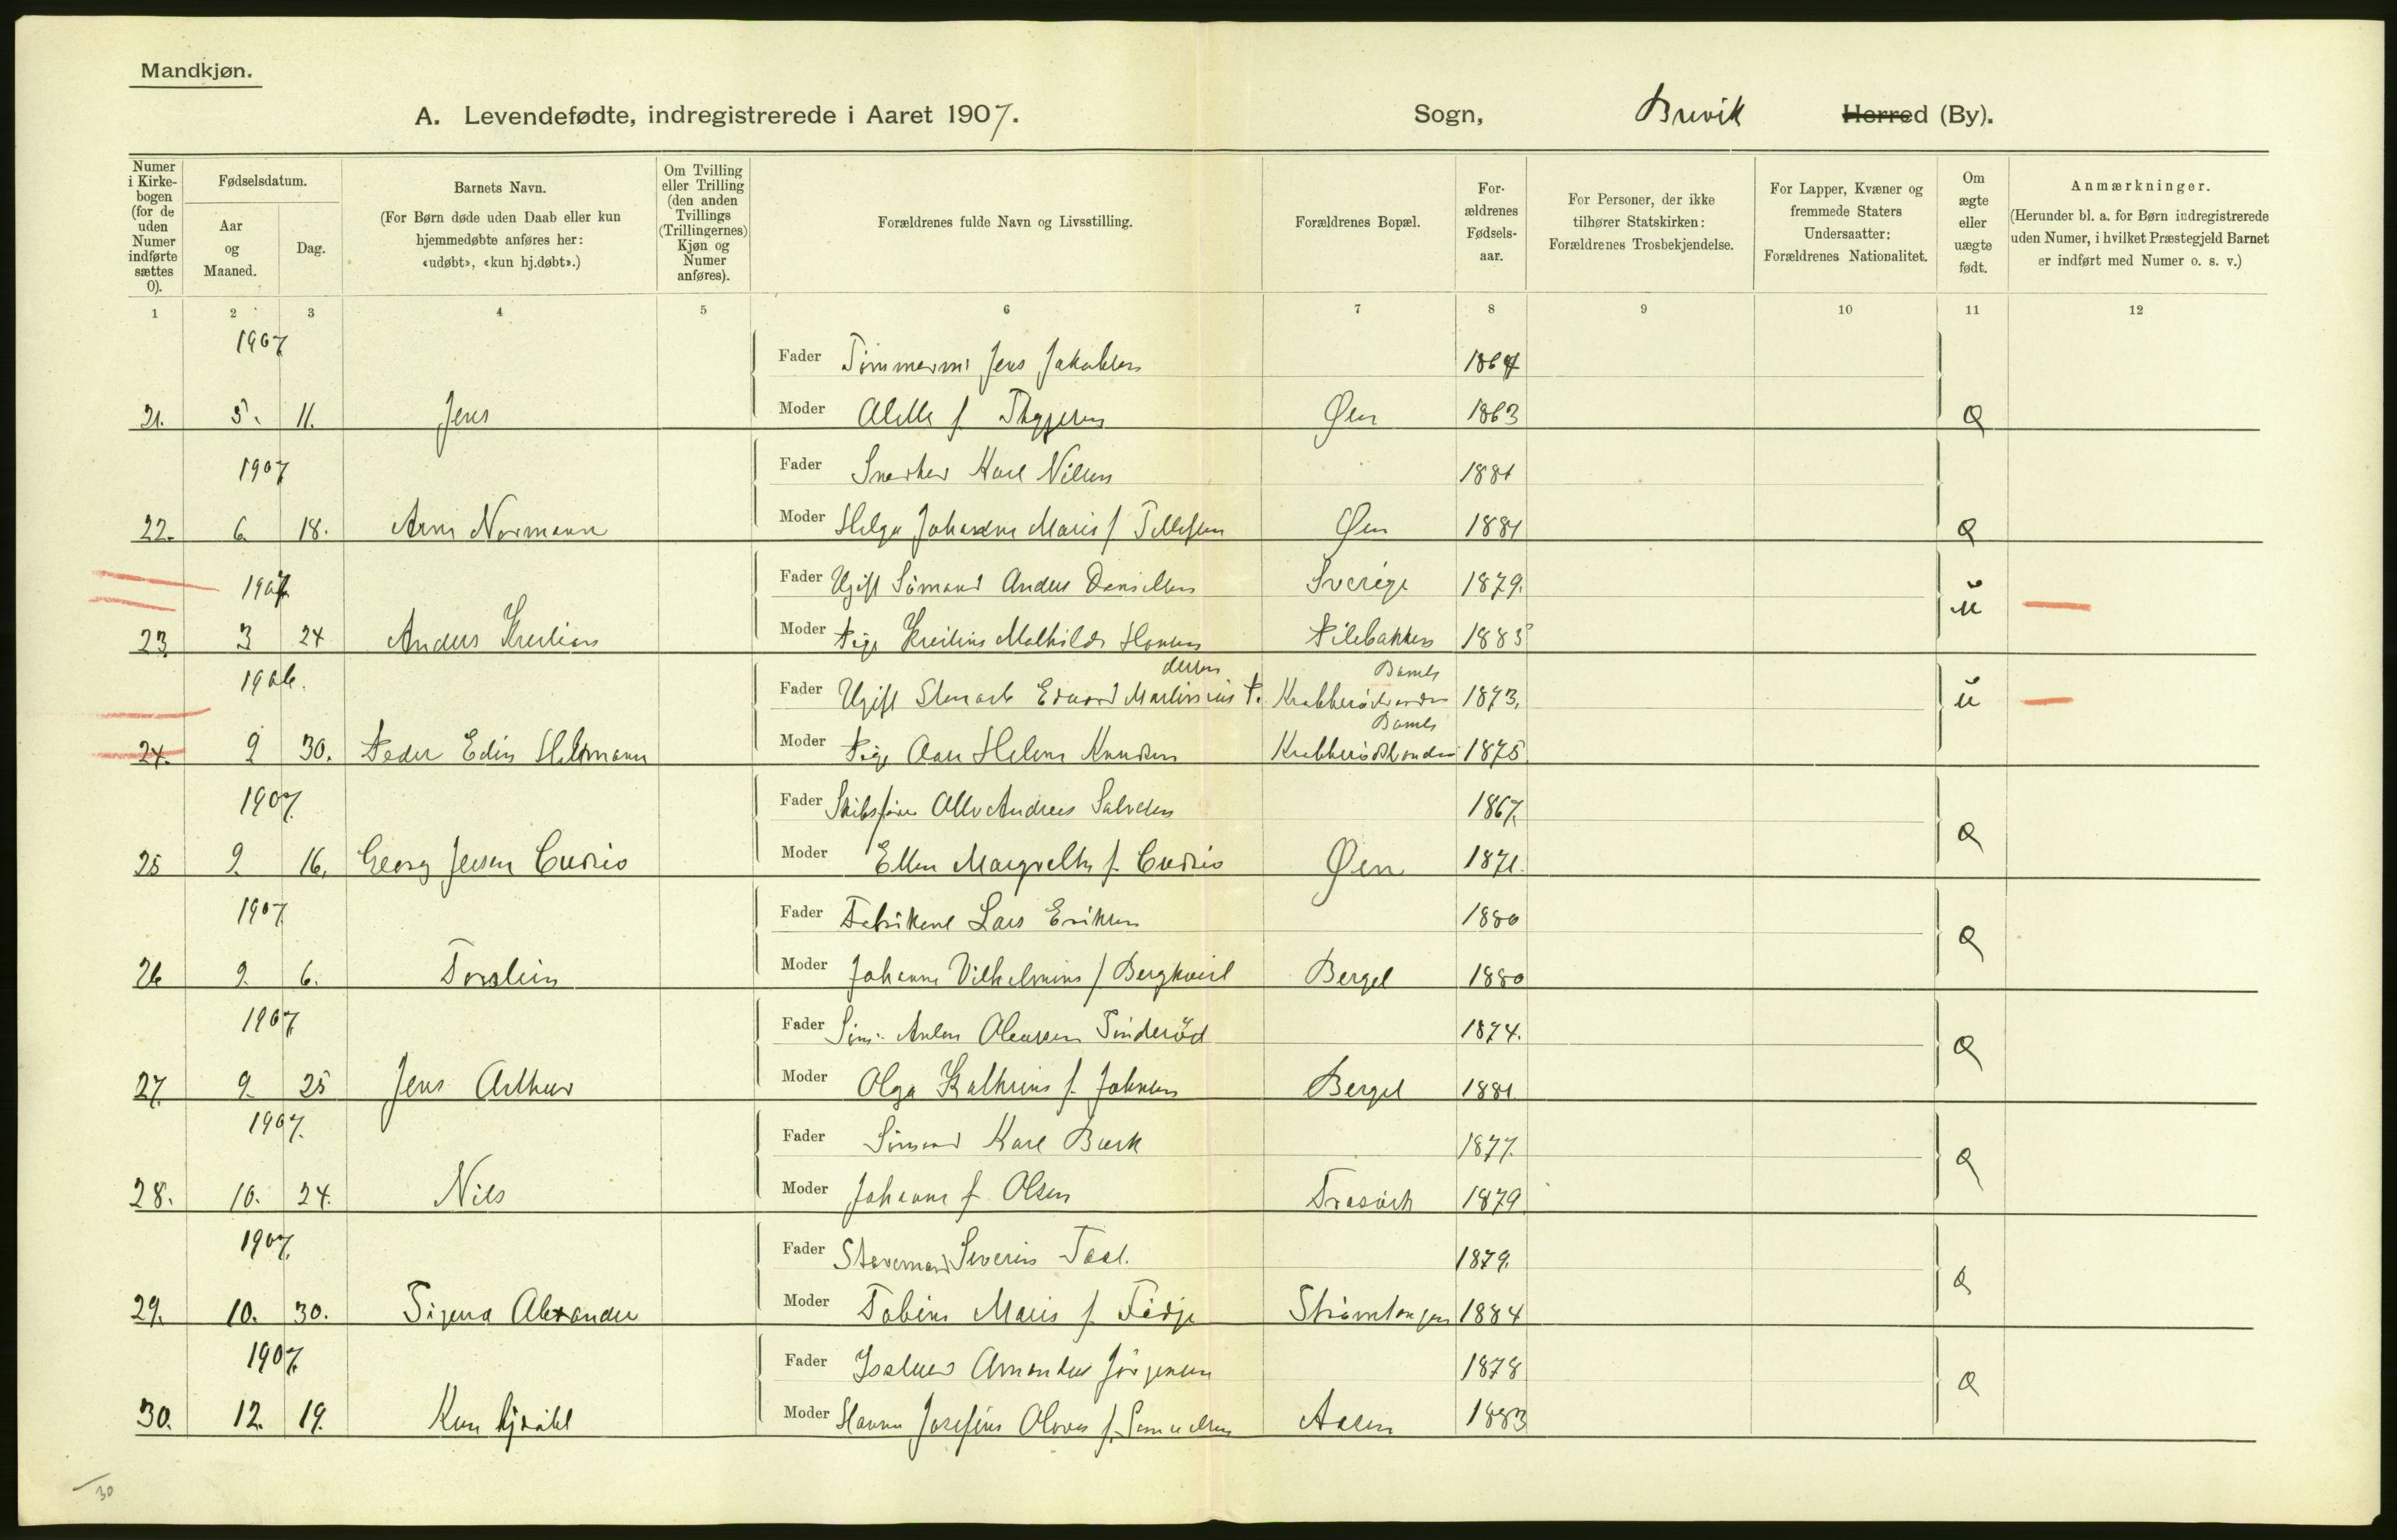 Mandkjøn.
A. Levendefødte, indregistrerede i Aaret 1907. Sogn, Brevik Herred (By).
Numer i Kirke-bogen (for de uden Numer indførte sættes 0).
Fødselsdatum.
Aar og Maaned.
Dag.
Barnets Navn.
(For Børn døde uden Daab eller kun hjemmedøbte anføres her: «udøbt», «kun hj.døbt».)
Om Tvilling eller Trilling (den anden Tvillings (Trillingernes) Kjøn og Numer anføres).
Forældrenes fulde Navn og Livsstilling.
Forældrenes Bopæl.
For-ældrenes Fødsels-aar.
For Personer, der ikke tilhører Statskirken: Forældrenes Trosbekjendelse.
For Lapper, Kvæner og fremmede Staters Undersaatter: Forældrenes Nationalitet.
Om ægte eller uægte født.
Anmærkninger.
(Herunder bl. a. for Børn indregistrerede uden Numer, i hvilket Præstegjeld Barnet er indført med Numer o. s. v.)
1 2 3 4 5 6 7 8 9 10 11 12
1907 Fader Jens Jakobsen
21. 5. 11. Jens Moder f. Øen 1863
1907 Fader Karl Nilsen 1881
22. 6 18. Arne Normann Moder Helga Johanne Marie f. Tellefsen Øen 1881
1907 Fader Ugift Sømand Anders Danielsen Sverige 1879.
23 3 24 Anders Moder Pige Mathilde Hansen Pilebakken 1885
1906. Fader Ugift Eduard Martinius P. dersen Bamle 1873.
24. 9 30. Peder Edin Moder Pige Helene Knudsen Bamle 1875
1907. Fader Skibsfører Andreas Salvesen 1867
25 9. 16. Georg Jensen Cudrio Moder Ellen Margrethe f. Cudrio Øen 1871.
1907 Fader Lars Eriksen 1880
26 9. 6. Torstein Moder Johanne Vilhelmine f. Bergkvist Berget 1880
1907 Fader Anton Olausen 1874.
27 9. 25 Jens Arthur Moder Olga Kathrine f. Johnsen Berget 1881
1907. Fader Sømand Karl Bærk 1877.
28. 10. 24. Nils Moder Johanne f. Olsen Trosvik 1879
1907. Fader Severin 1879.
29. 10. 30. Alexander Moder Tobine Marie f. Strømtangen 1884
1907. Fader Amandus Jörgensen 1878
30. 12. 19. Kun hjdöbt Moder Hanna Josefine f. Samuelsen 1883
30